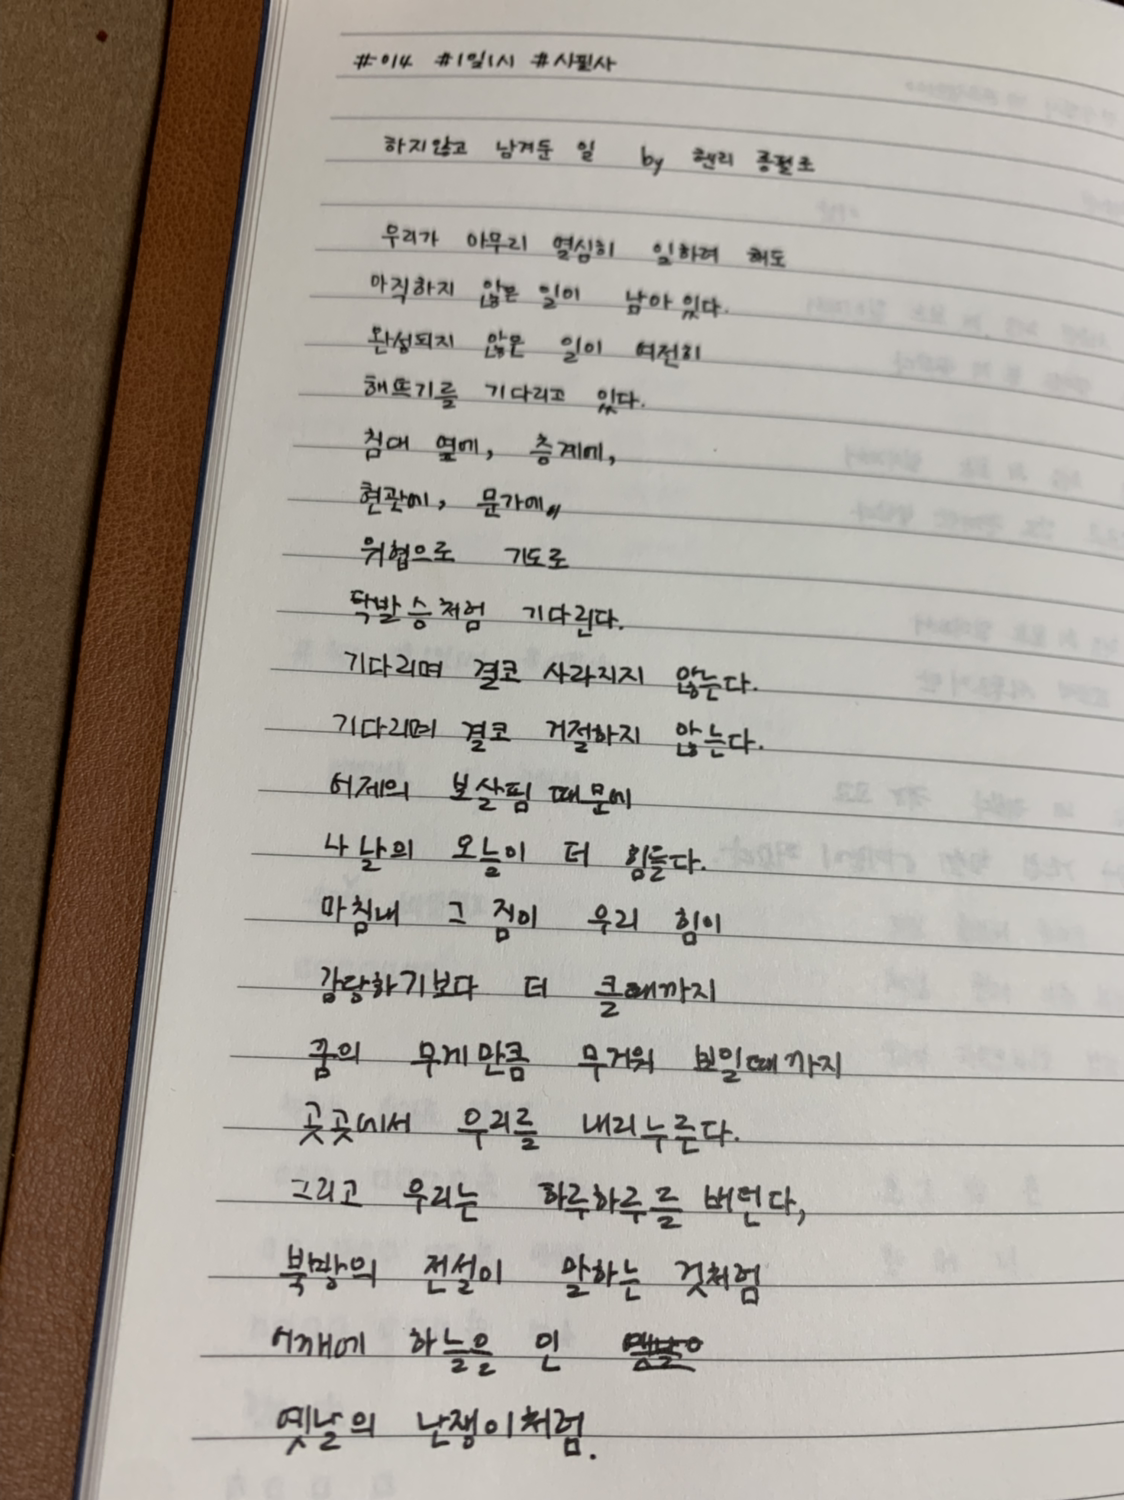 #014 #1일1시 #시필사
하지않고 남겨둔 일 by 헨리 롱펠로
우리가 아무리 열심히 일하려 해도
아직하지 않은 일이 남아 있다.
완성되지 않은 일이 여전히
해뜨기를 기다리고 있다.
침대 옆에, 층계에,
현관에, 문가에,
위협으로 기도로
탁발승처럼 기다린다.
기다리며 결코 사라지지 않는다.
기다리며 결코 거절하지 않는다.
어제의 보살핌 때문에
나날의 오늘이 더 힘들다.
마침내 그 짐이 우리 힘이
감당하기보다 더 클때까지
꿈의 무게만큼 무거워 보일때까지
곳곳에서 우리를 내리누른다.
그리고 우리는 하루하루를 버틴다,
북방의 전설이 말하는 것처럼
어깨에 하늘을 인
옛날의 난쟁이처럼.